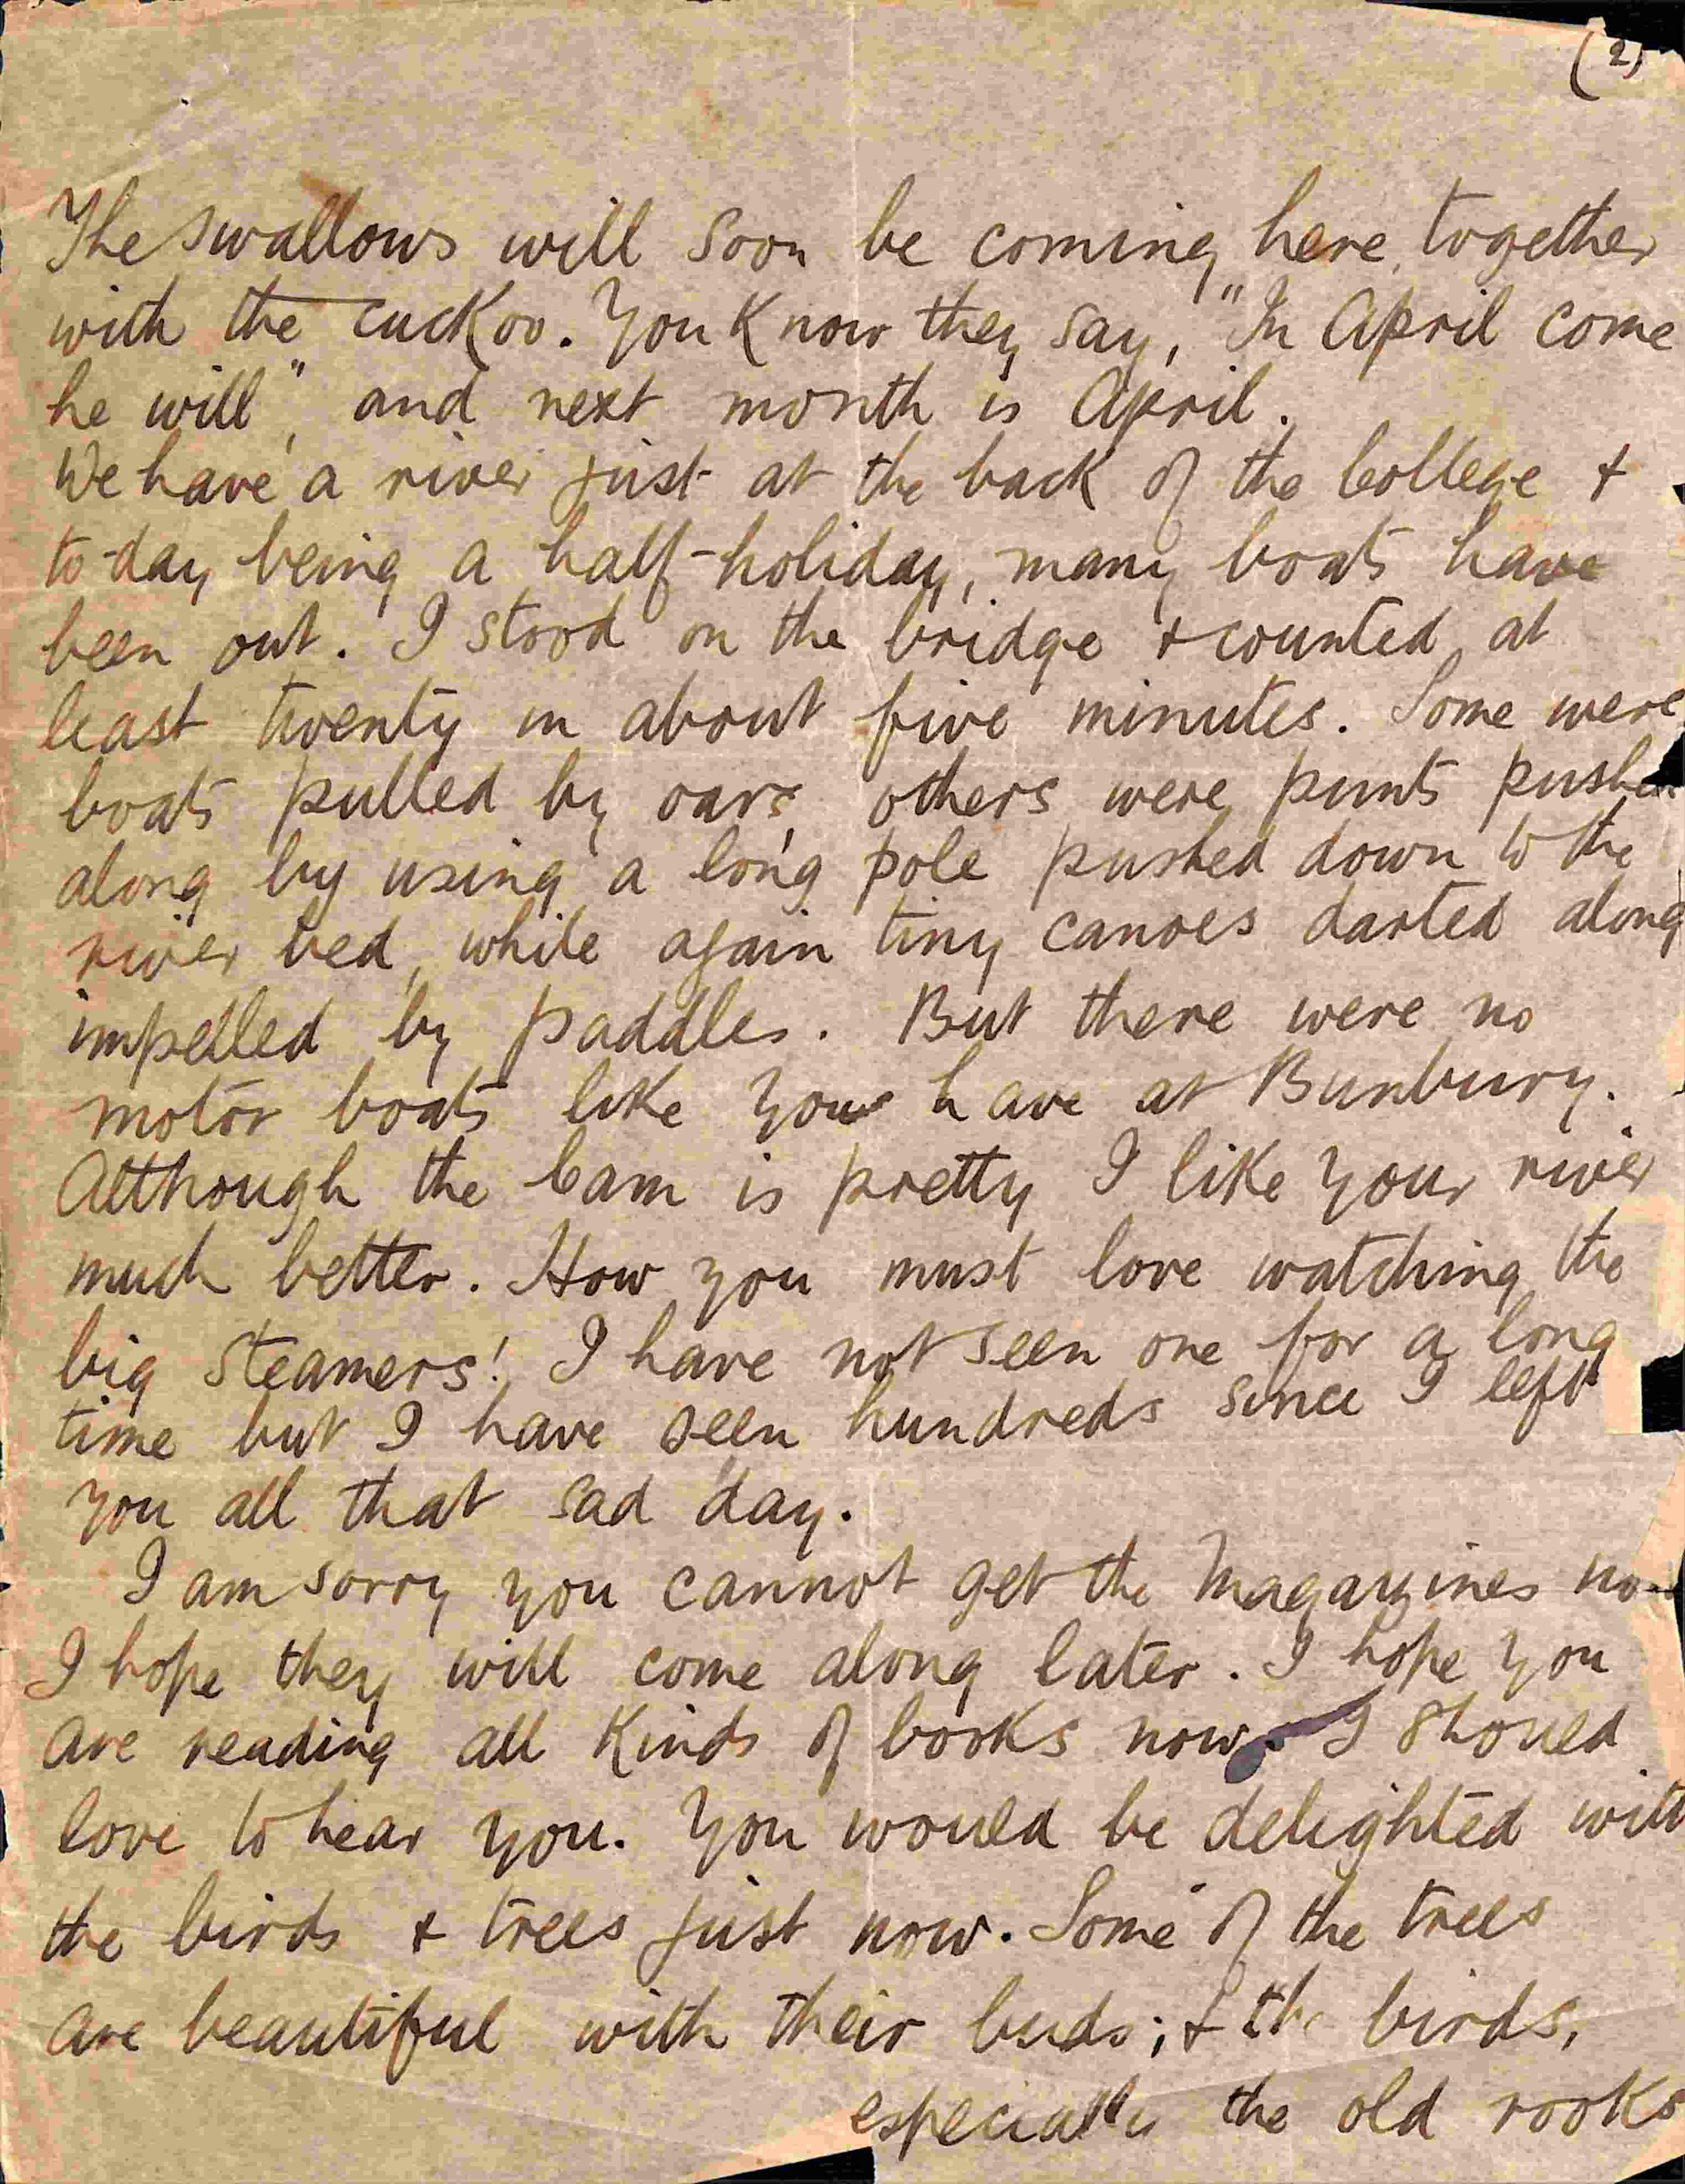 (2)
The swallows will soon be coming here, together
with the cuckoo. You know they say, "In April come
he will", and next month is April.
We have a river just at the back of the College &
to-day being a half-holiday, many boats have
been out. I stood on the bridge & counted at
least twenty in about five minutes. Some were
boats pulled by oars, others were punts pushed
along by using a long pole pushed down to the
river bed, while again tiny canoes darted along
impelled by paddles. But there were no
motor boats like you have at Bunbury.
Although the Cam is pretty I like your river
much better. How you must love watching the
big steamers! I have not seen one for a long
time but I have seen hundreds since I left
you all that sad day.
I am sorry you cannot get the Magazines
I hope they will come along later. I hope you
are reading all kinds of books now. I should
love to hear you. You would be delighted with
the birds & trees just now. Some of the trees
are beautiful with their buds; & the birds,
especially the old rooks